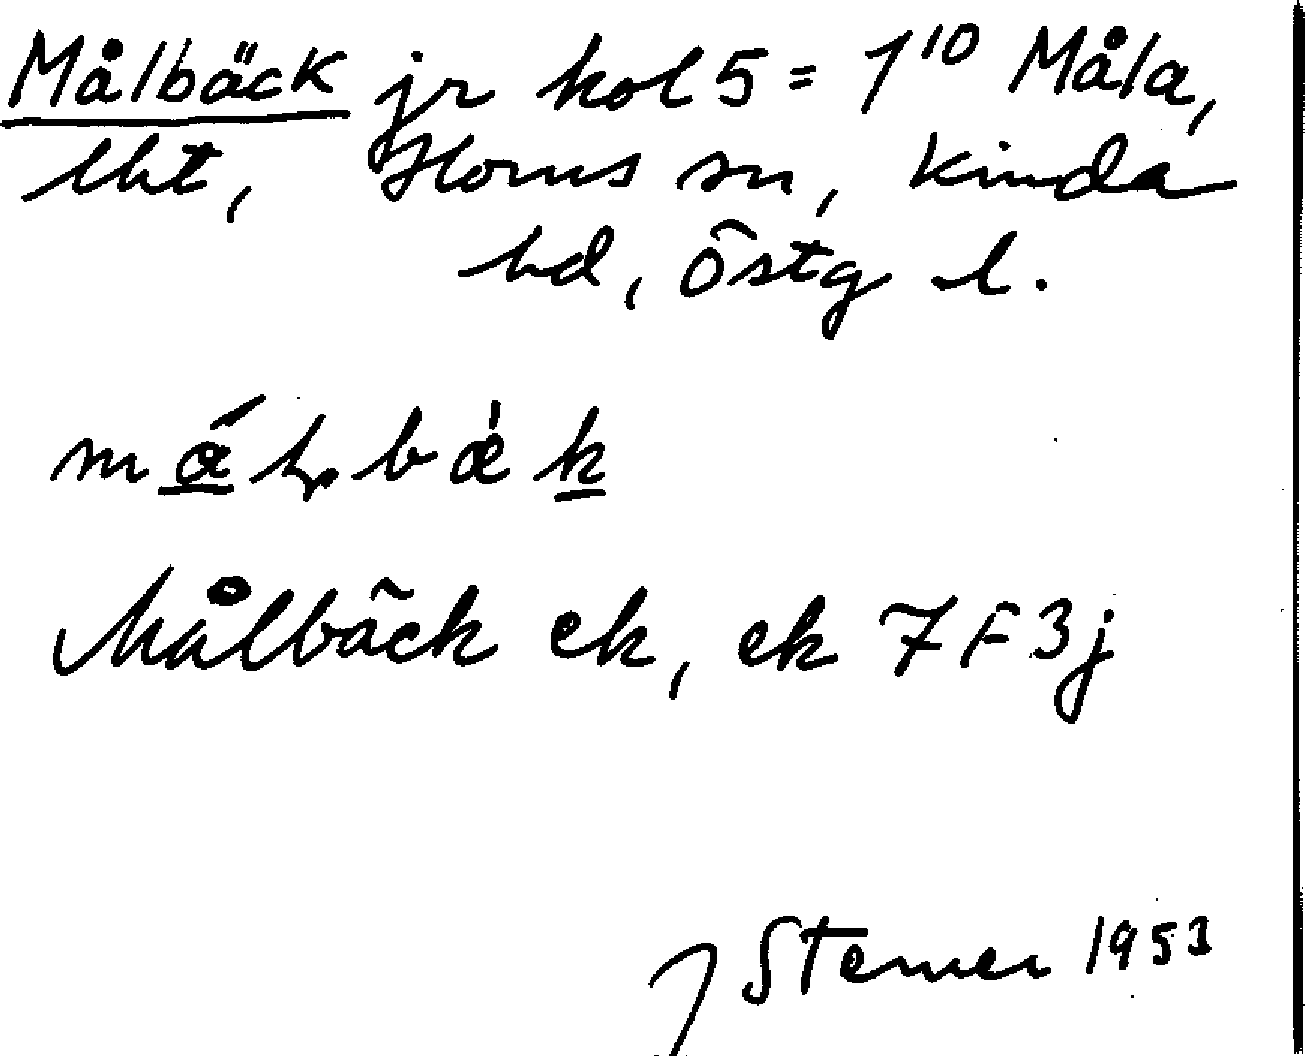 Målbäck jr kol 5 = 1¹⁰ Måla,
lht, Horns sn, Kinda
hd, Östg l.
Målbäck ek, ek 7F3j
J Sterner 1953